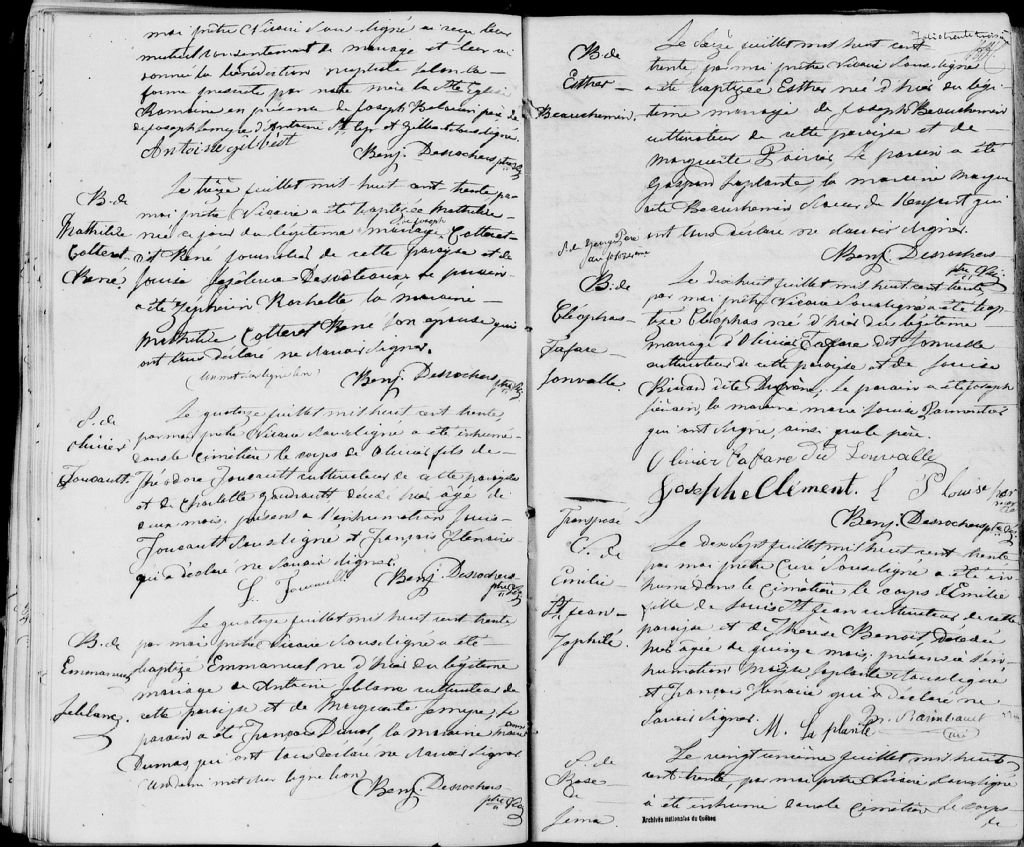 moi prêtre Vicaire soussigné ai reçu leur
mutuel consentement de mariage et leur ai
donné la bénédiction nuptiale selon la
forme prescrite par notre mère la Ste Eglise
Romaine en présence de Joseph père de
de Joseph Lemyre d'Antoine et Gilbert soussigné
Antoine gilbert
Benj. Desrochers ptre Vic
B. de
Mathilde
Cotteret
René
Le treize juillet mil huit cent trente par
moi prêtre Vicaire a été baptisée Mathilde
née ce jour du légitime mariage de Joseph Cotteret
dit René journalier de cette paroisse et de
Louise Desruteaux, le parrain
a été Zéphirin Rochette la marraine
Mathilde Cotteret René son épouse qui
ont tous déclaré ne savoir signer.
Un mot en ligne bon
Benj. Desrochers ptre Vic
S. de
Olivier
Foucault
Le quatorze juillet mil huit cent trente,
par moi prêtre Vicaire soussigné a été inhumé
dans le cimetière le corps de Olivier fils de
Théodore Foucault cultivateur de cette paroisse
et de Charlotte Gaudrault, décédé hier âgé de
deux mois, présens à l'inhumation Louis
Foucault soussigné et François Ilenaire
qui a déclaré ne savoir signer.
L. Foucault
Benj. Desrochers
ptre Vic
B. de
Emmanuel
Leblanc.
Le quatorze juillet mil huit cent trente
par moi prêtre Vicaire soussigné a été
baptizé Emmanuel né d'hier du légitime
mariage de Antoine Leblanc cultivateur de
cette paroisse et de Marguerite Lemyre, le
parrain a été François Duval, la marraine Marie
Dumas, qui ont tous déclaré ne savoir signer
Un demi mot en ligne bon
Benj. Desrochers
ptre Vic
B. de
Esther
Beauchemin.
Le Seize juillet mil huit cent
trente, par moi prêtre Vicaire soussigné
a été baptizée Esther née d'hier du légi-
time mariage de Joseph Beauchemin
cultivateur de cette paroisse et de
Marguerite Poirier le parrain a été
Gaspard Laplante, la marraine Margue
rite Beauchemin soeur de l'enfant qui
ont tous déclaré ne savoir signer.
Benj. Desrochers
ptre Vic.
B. de
Cléophas
Lafare
Jonvalle.
Le dix huit juillet mil huit cent trente
par moi prêtre Vicaire soussigné a été bap-
tizé Cléophas né d'hier du légitime
mariage d'Olivier Lafare dit Jonvalle
cultivateur de cette paroisse et de Louise
Ricard dite, le parrain a été Joseph
la marraine marie Louise
qui ont signé, ainsi que le père.
Olivier Lafare Did Lonvalle
Joseph Clément. L P Louise
Benj. Desrochers ptre Vic.
Transposé
S. de
Emilie
St jean
Lophilé.
Le dix sept juillet mil huit cent trente
par moi prêtre Curé soussigné a été in-
humé dans le cimetière le corps d'Emilie
fille de Louis St Jean cultivateur de cette
paroisse et de Thérèse Benoit Décédée
hier agée de quinze mois, présens à l'in-
humation Moyse Laplante soussigné
et François Ilenaire qui a déclaré ne
savoir signer.
M. La plante
Raimbault
curé
S. de
Rose
de
Lima
Le vingt unième juillet mil huit
cent trente, par moi prêtre Vicaire soussigné
à été inhumé dans le cimetière le corps
de
Archives nationales du Québec